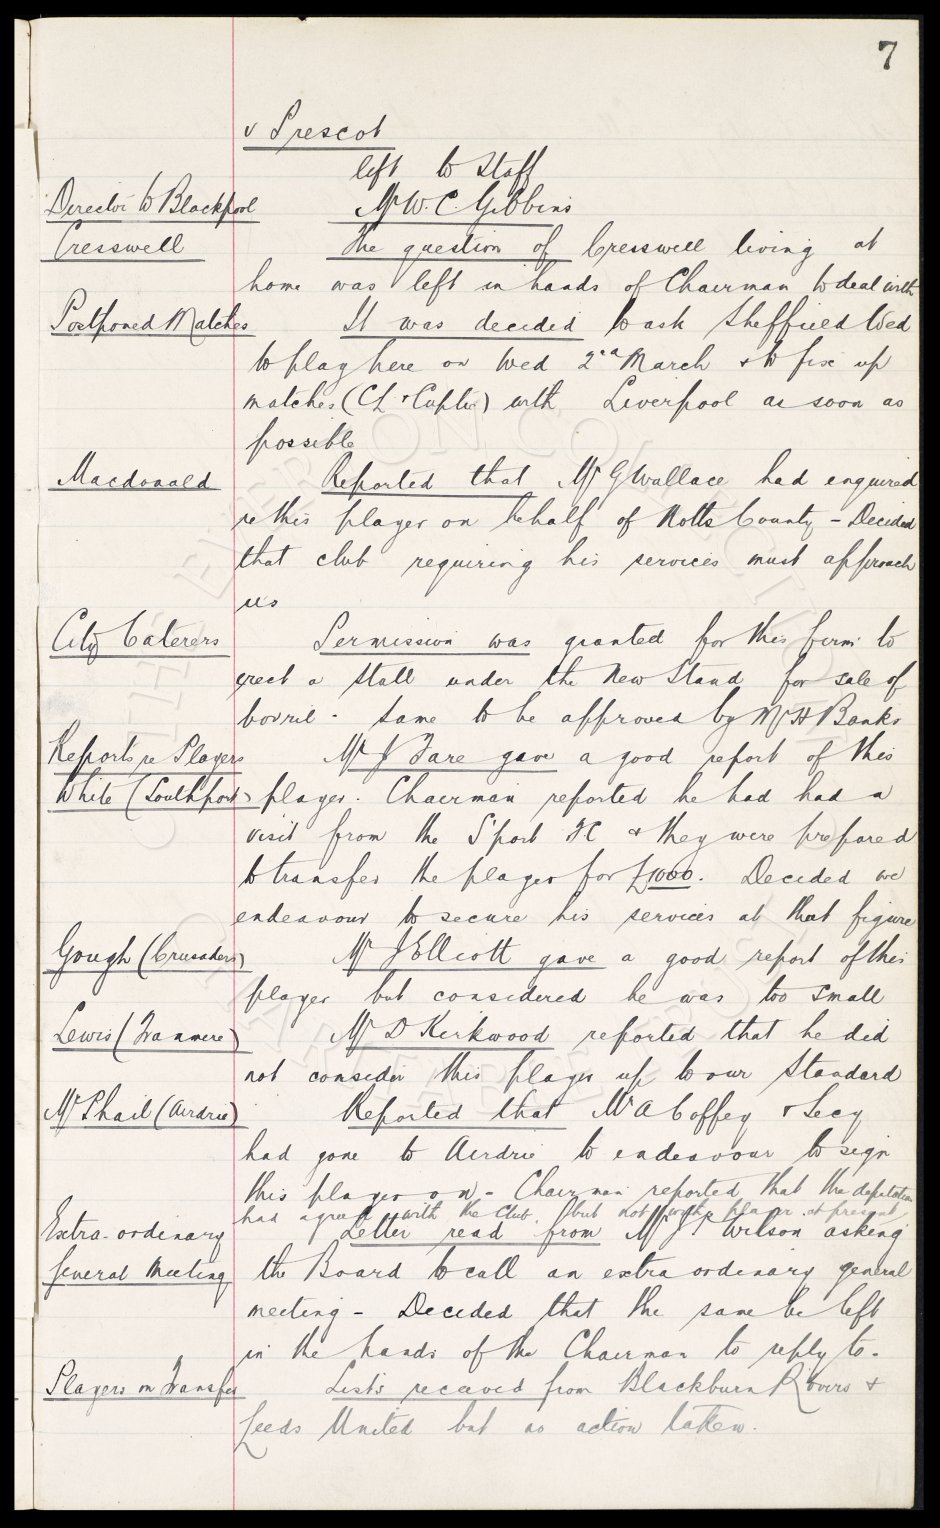 7
v Prescot
left to Staff
Director to Blackpool Mr W. C. Gibbins
Cresswell The question of Cresswell living at
home was left in hands of Chairman to deal with
Postponed Matches It was decided to ask Sheffield Wed
to play here on Wed 2nd March & to fix up
matches (Ch & Cuptie) with Liverpool as soon as
possible
Macdonald Reported that Mr G Wallace had enquired
re this player on behalf of Notts County - Decided
that club requiring his services must approach
us
City Caterers Permission was granted for this firm to
erect a stall under the New Stand for sale of
bovril - same to be approved by Mr H Banks
Reports re Players Mr J Fare gave a good report of this
White (Southport) player. Chairman reported he had had a
visit from the S'port FC & they were prepared
to transfer the player for £1000. Decided we
endeavour to secure his services at that figure
Gough (Crusaders) Mr J Elliott gave a good report of this
player but considered he was too small
Lewis (Tranmere) Mr D Kirkwood reported that he did
not consider this player up to our Standard
McPhail (Airdrie) Reported that Mr A Coffey & Secy
had gone to Airdrie to endeavour to sign
this player on - Chairman reported that the deputation
had agreed with the Club, but not with player at present,
Extra-ordinary Letter read from Mr J P Wilson asking
General Meeting the Board to call an extra ordinary general
meeting - Decided that the same be left
in the hands of the Chairman to reply to.
Players on Transfer Lists received from Blackburn Rovers &
Leeds United but no action taken.
THE EVERTON COLLECTION
CHARITABLE TRUST